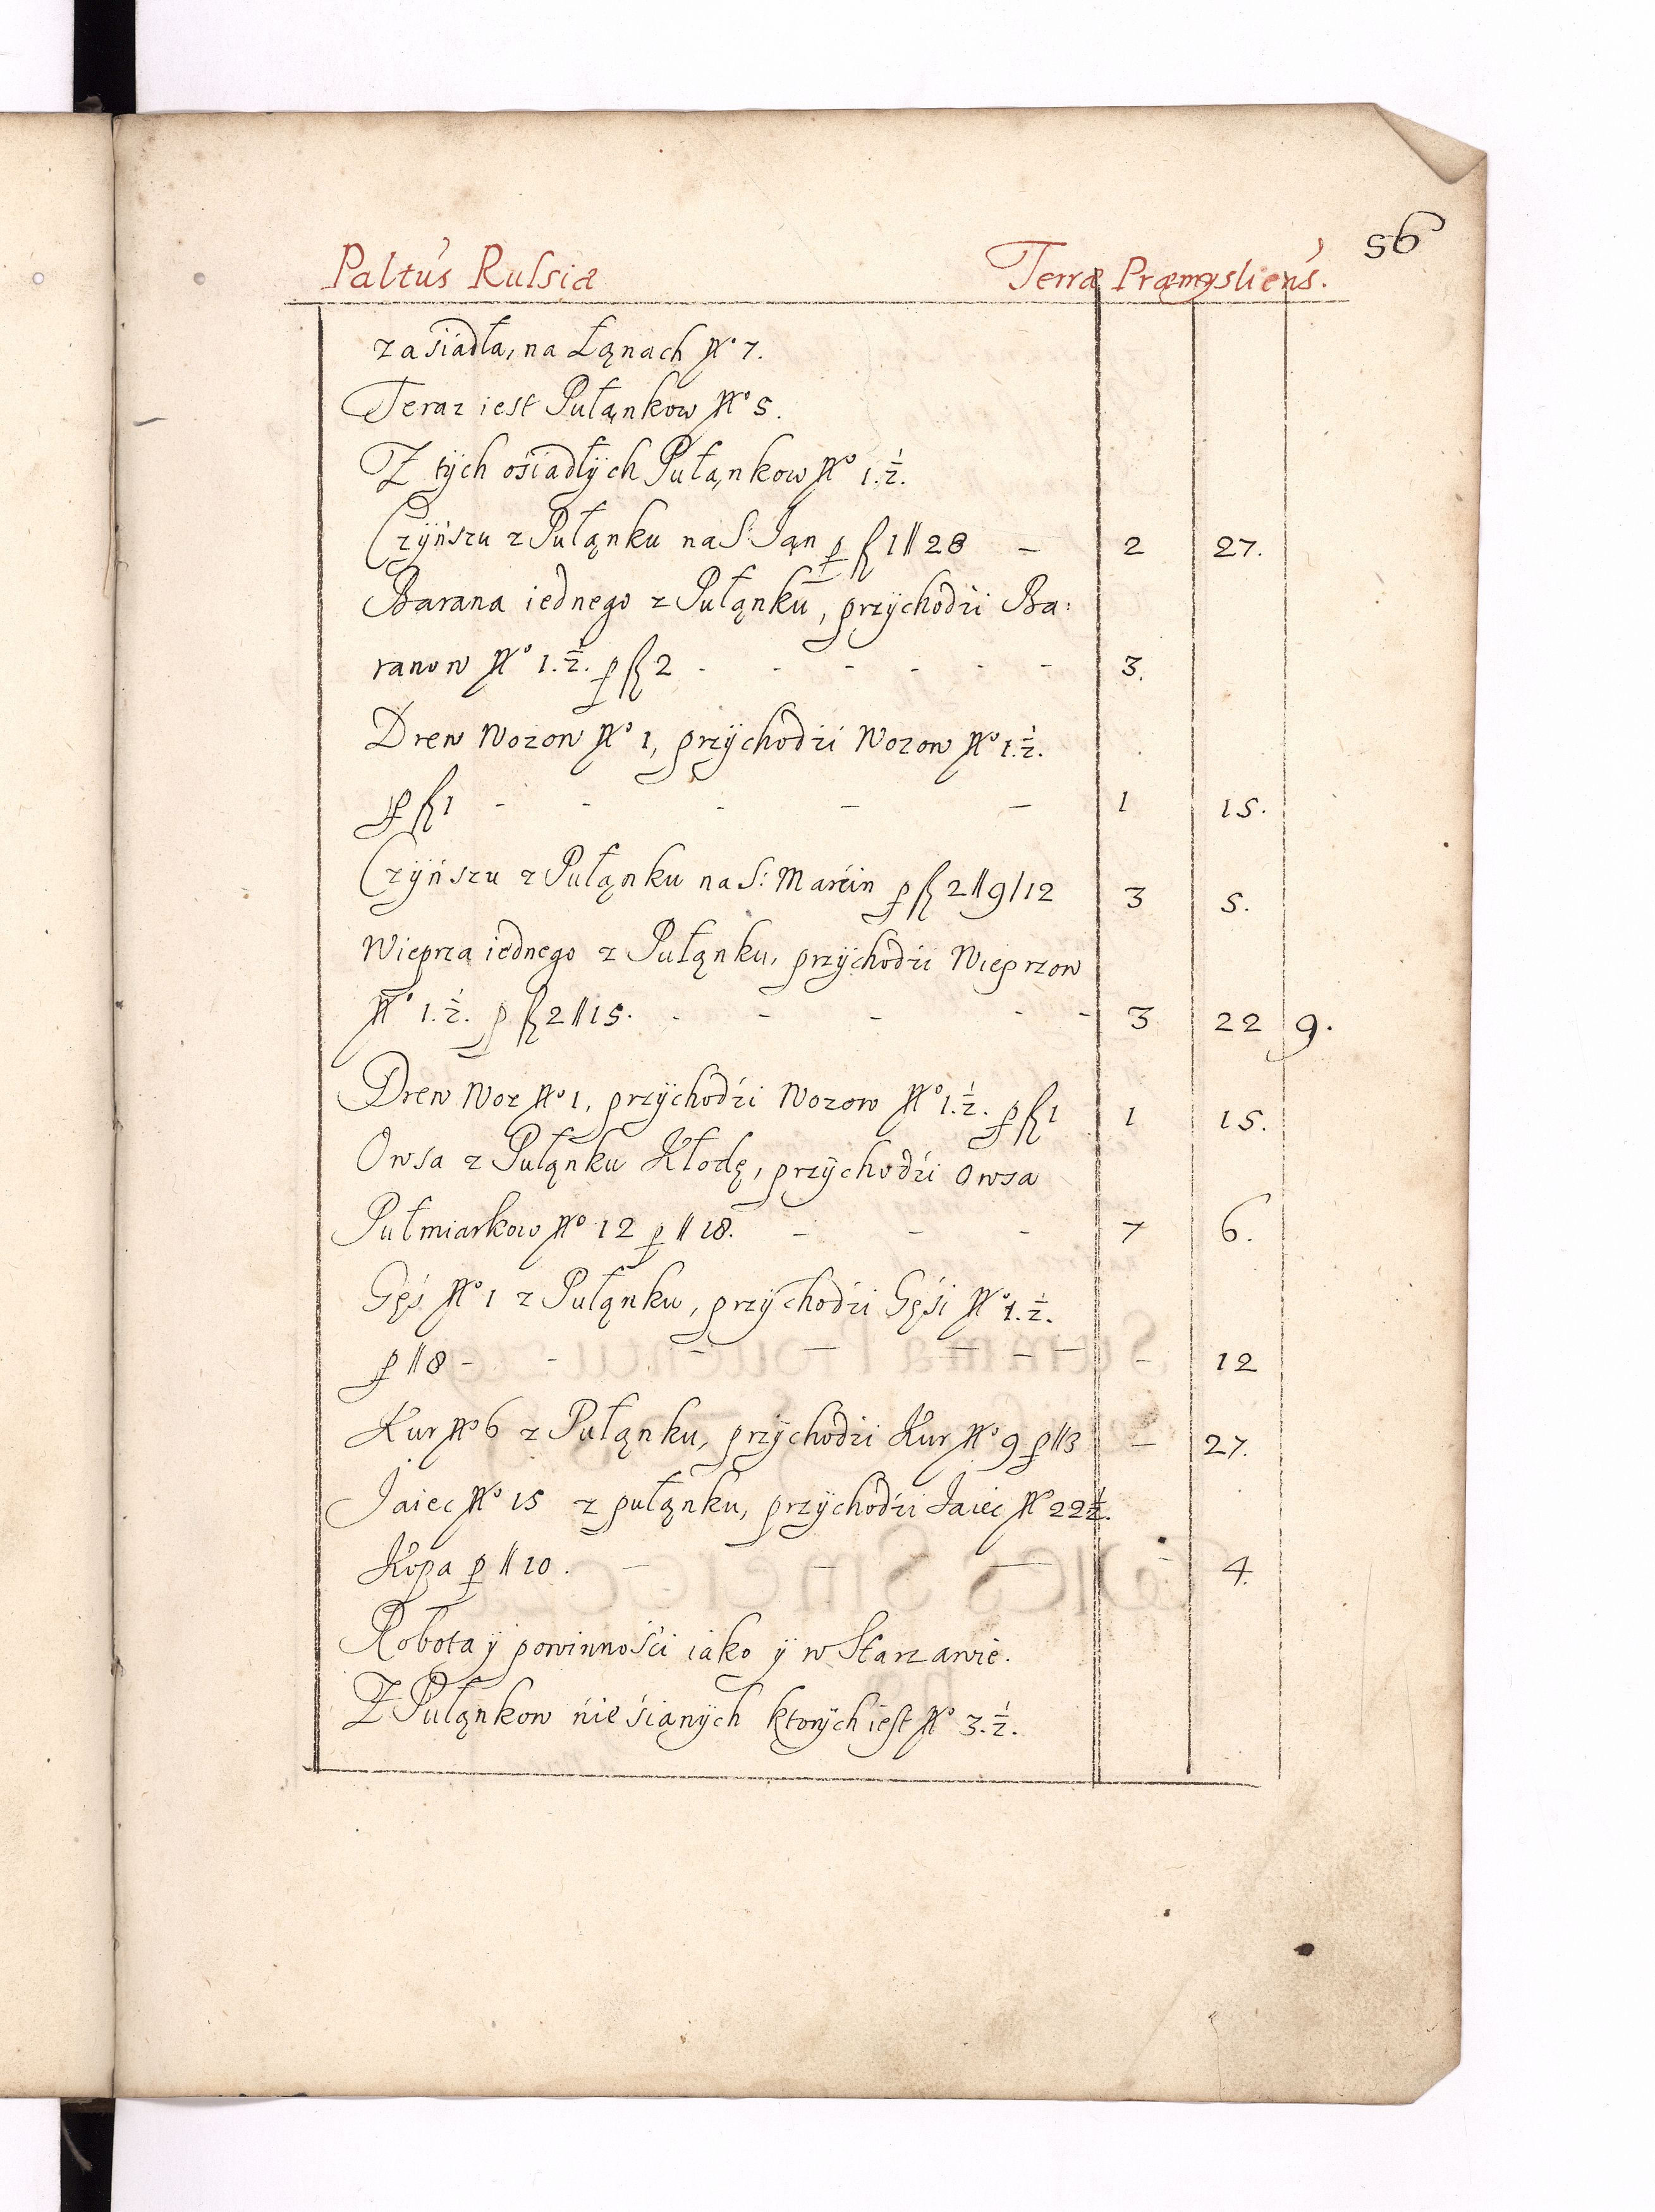 56
Paltus Russiæ Terræ Præmysliens.
zasiadła, na Łąnach No 7.
Teraz iest Pułąnkow No 5.
Z tÿch ośiadłÿch Pułąnkow No 1.½.
Czÿńszu z Pułąnku na S: Jąn p fl 1 || 28 — 2 27.
Barana iednego z Pułąnku, przÿchodźi Ba:
ranow No 1.½. p fl 2 - - - - - - 3.
Drew Wozow No 1, przÿchodźi Wozow No 1.½.
p fl 1 - - - — — 1 15.
Czÿńszu z Pułąnku na S: Marćin p fl 2 || 9 | 12 3 5.
Wieprza iednego z Pułąnku, przÿchodźi Wieprzow
No 1.½. p fl 2 || 15. - - - - - 3 22 9.
Drew Woz No 1, przÿchodźi Wozow No 1.½. p fl 1 1 15.
Owsa z Pułąnku Kłodę, przÿchodźi Owsa
Pułmiarkow No 12 p || 18. — — - 7 6.
Gęś No 1 z Pułąnku, przÿchodźi Gęśi No 1.½.
p || 8 - - - — — — — - 12
Kur No 6 z Pułąnku, przÿchodźi Kur No 9 p || 3 — 27.
Jaiec No 15 z pułąnku, przÿchodźi Jaiec No 22½.
Kopa p || 10. — — — - 4.
Robota ÿ powinnośći iako ÿ w Starzawie.
Z Pułąnkow nieśiąnÿch ktorÿch iest No 3.½.